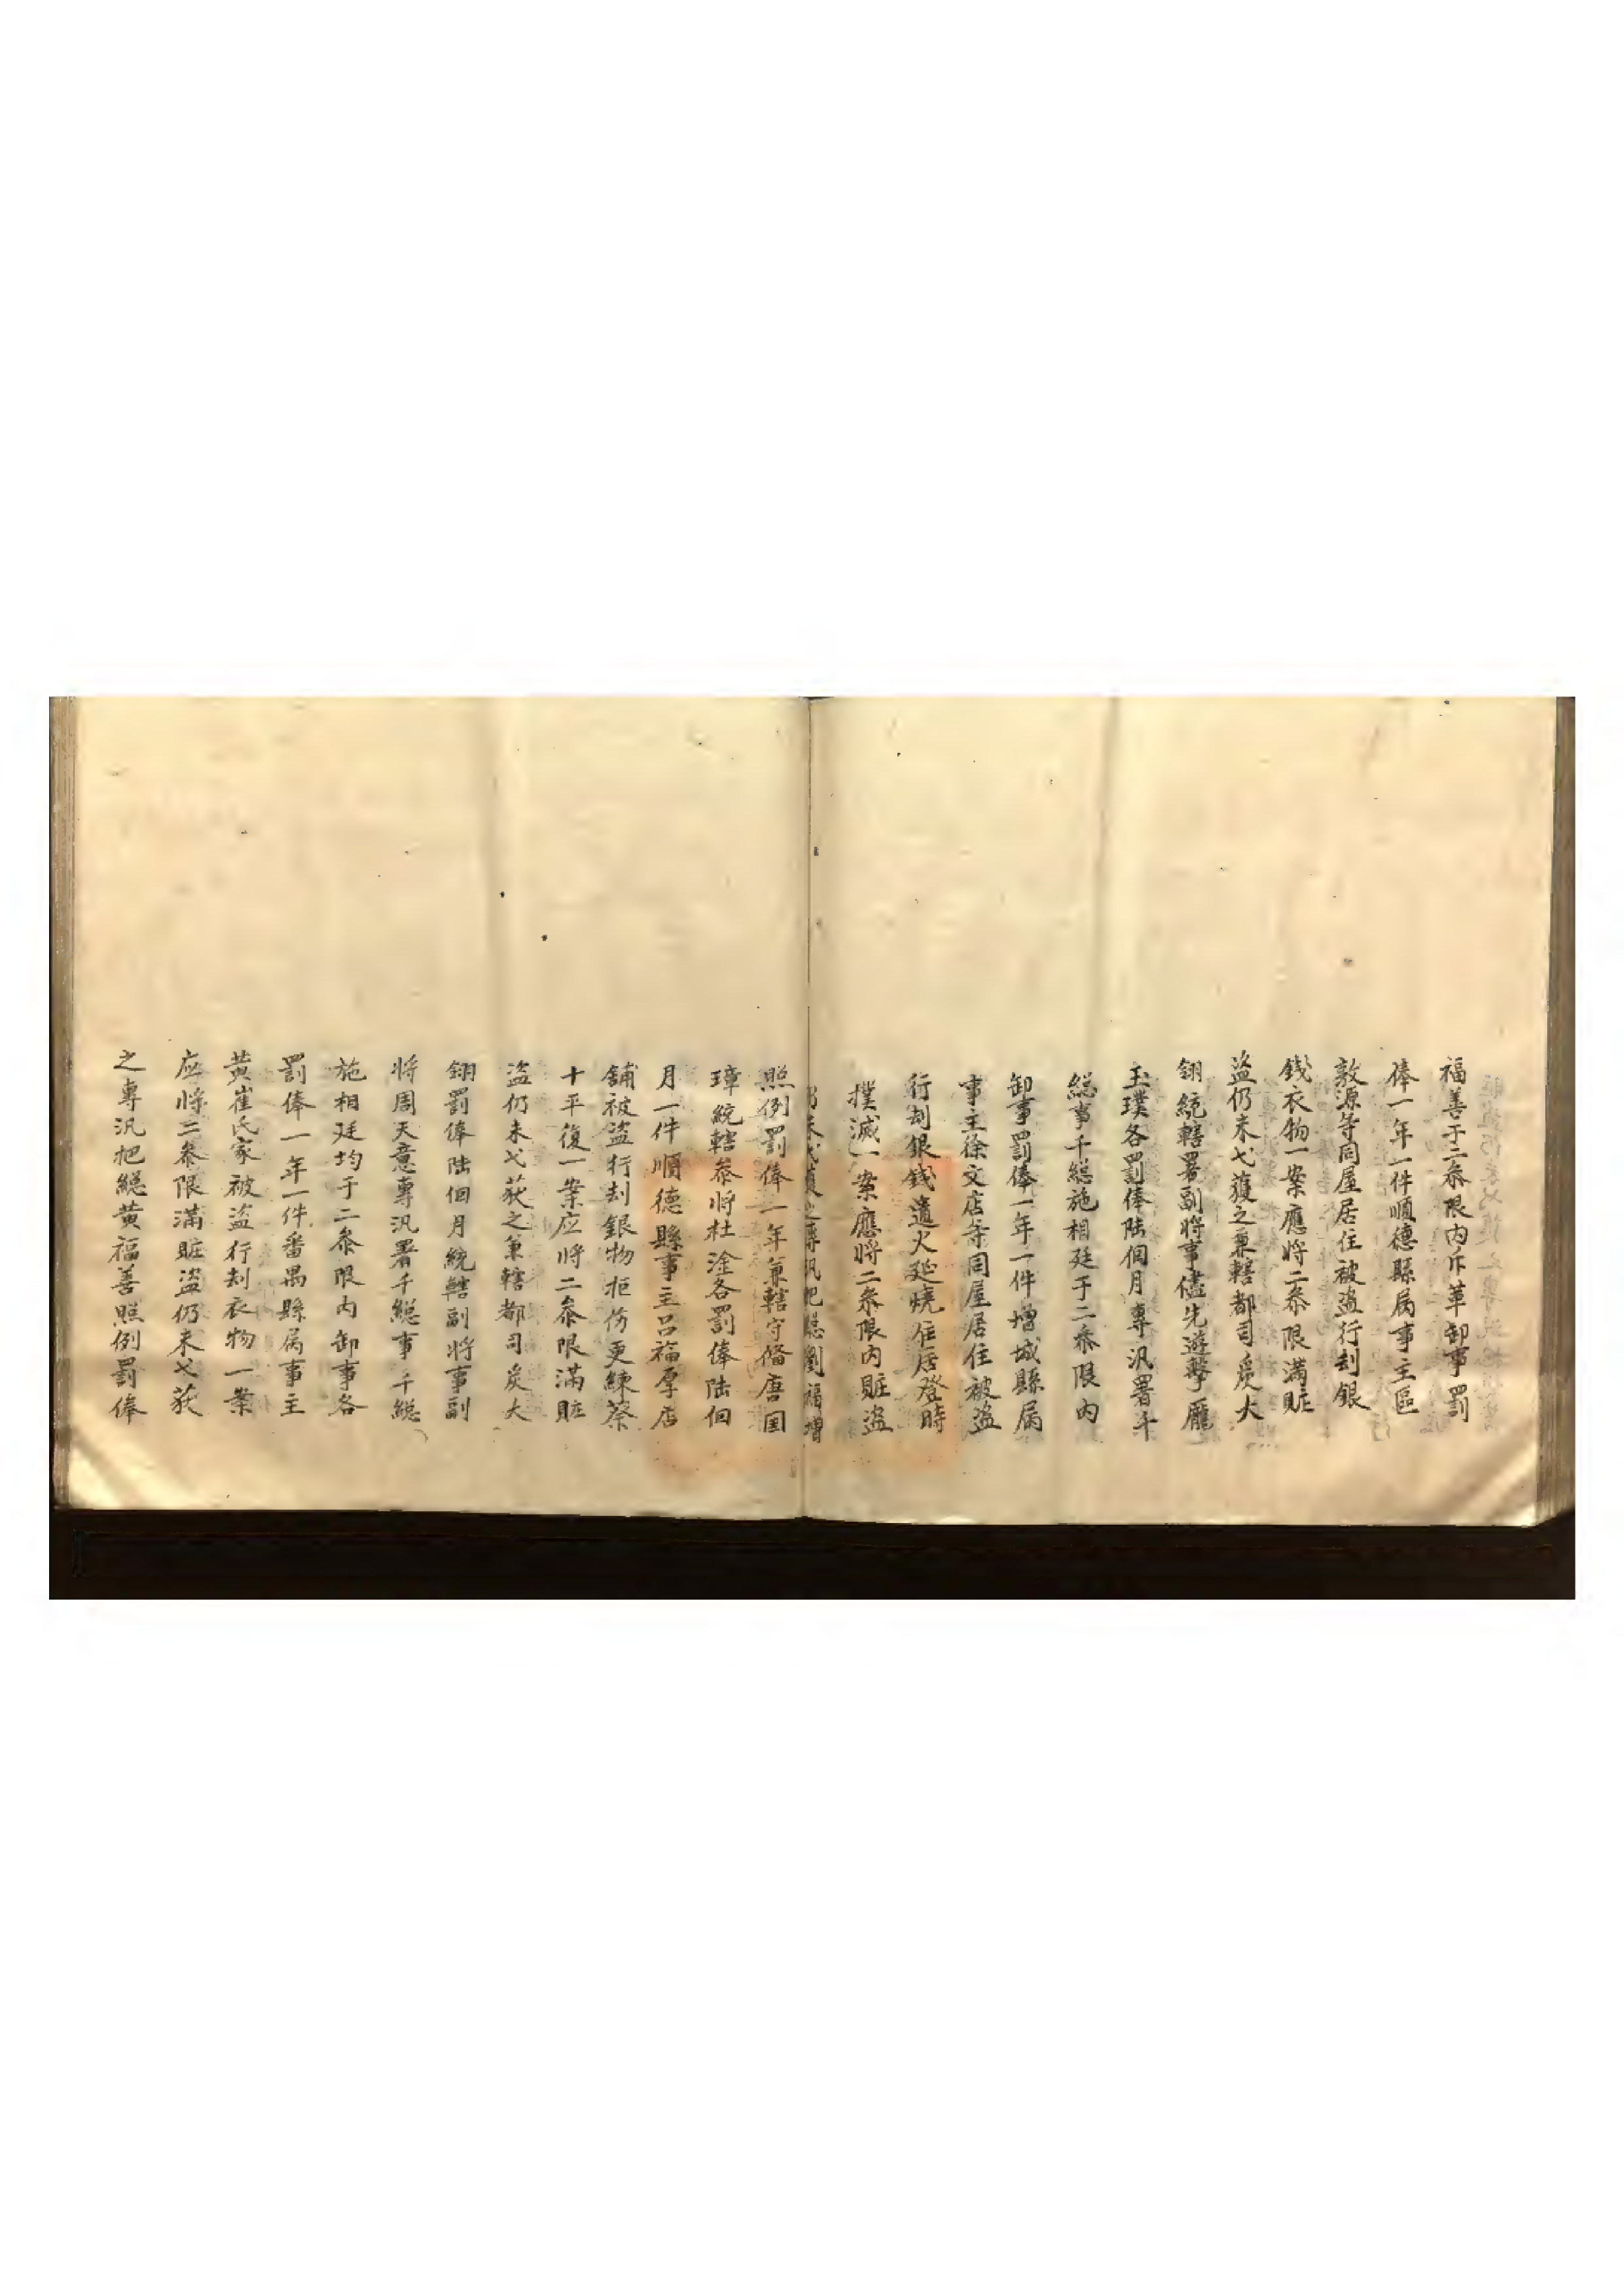 福善于二叅限内斥革卸事罰
俸一年一件順德縣屬事主區
敦源等同屋居住被盜行刦銀
錢衣物一案應將二叅限滿賍
盜仍未弋獲之兼轄都司炭大
翎統轄署副將事儘先遊擊龐
玉璞各罰俸陆個月專汛署千
総事千総施相廷于二叅限内
卸事罰俸一年一件增城縣屬
事主徐文店等同屋居住被盜
行刼銀錢遺火延燒住居登時
撲滅一案應將二叅限内賍盜
仍未弋獲之專汛把総劉福增
照例罰俸一年兼轄守俻唐国
璋統轄叅將杜淦各罰俸陆個
月一件順德縣事主呂福厚店
舖被盜行刦銀物拒伤更練蔡
十平復一案应将二叅限滿賍
盜仍未弋获之兼轄都司炭大
翎罰俸陆個月統轄副将事副
將周天意專汛署千総事千総
施相廷均于二叅限内卸事各
罰俸一年一件番禺縣屬事主
黄崔氏家被盜行刦衣物一案
应將二叅限滿賍盜仍未弋获
之專汛把総黄福善照例罰俸